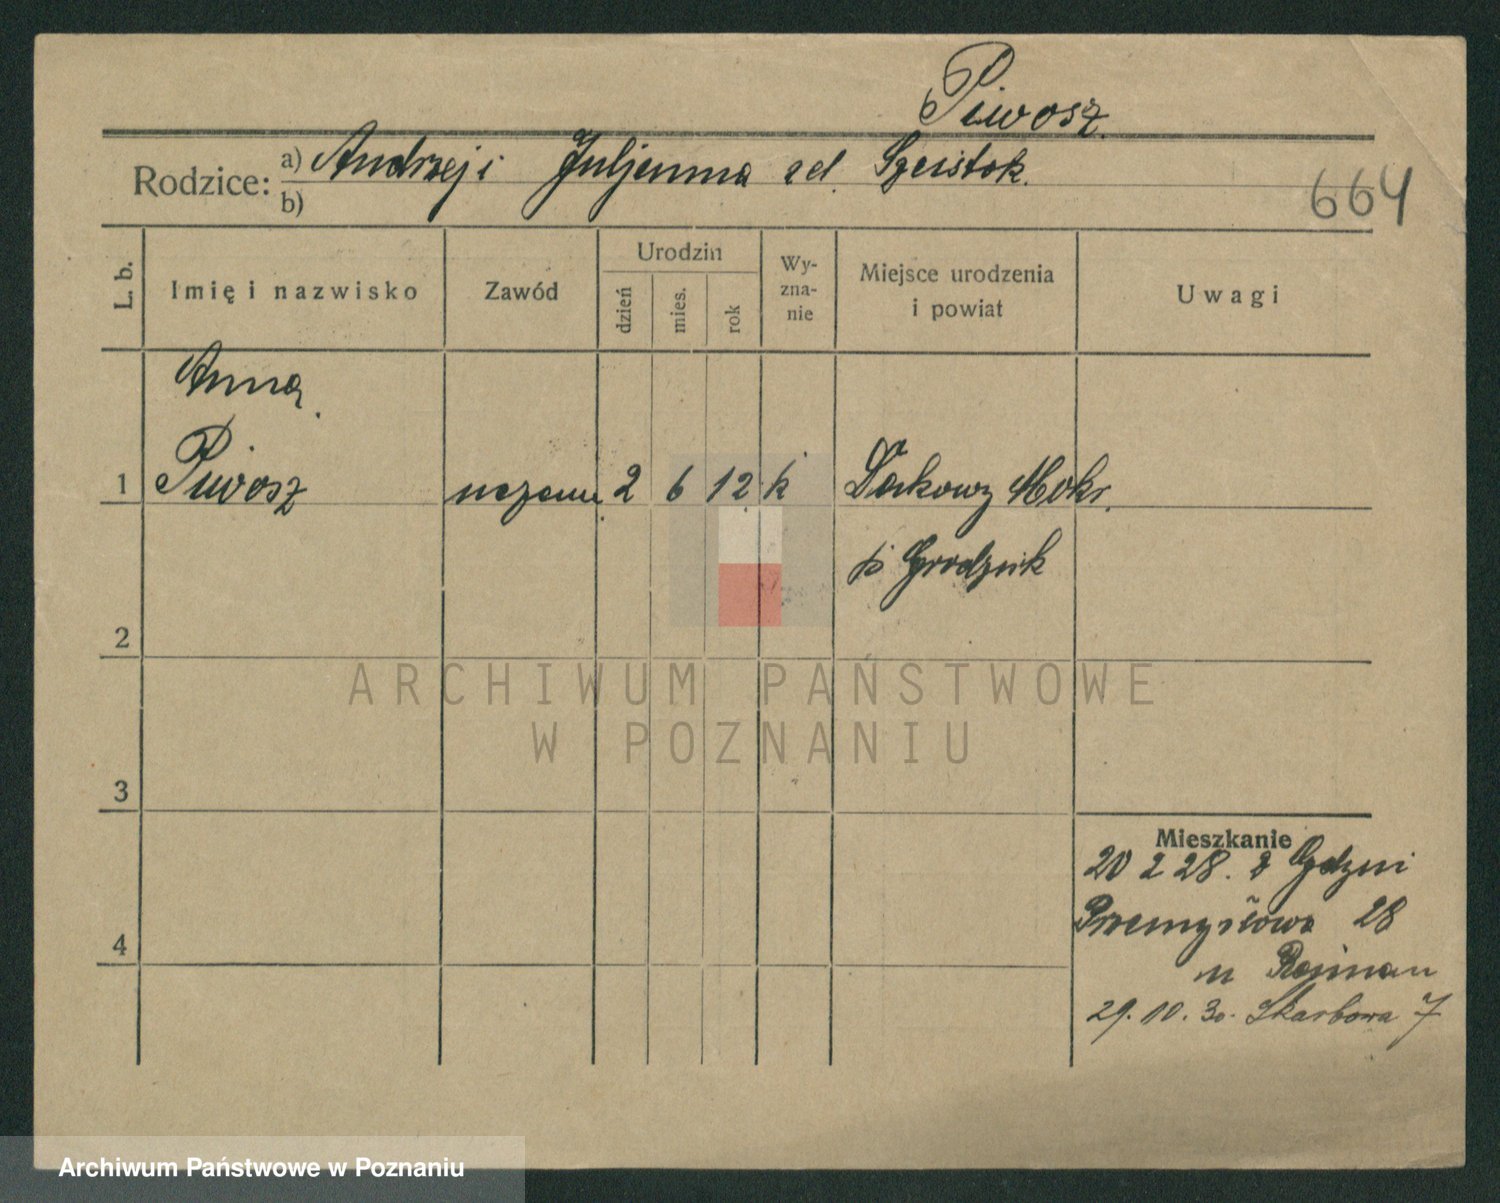 Piwosz.
Rodzice: a) Andrzej i Juljanna zd. Szeistok.
b)
664
L. b.
Imię i nazwisko
Zawód
Urodzin
dzień
mies.
rok
Wy-
zna-
nie
Miejsce urodzenia
i powiat
Uwagi
Anna
1 Piwosz 2 6 12 k Mokr.
p Grodzisk
2
3
4
Mieszkanie
20 2 28. z Gdyni
Przemysłowa 28
u
29. 10. 30. Skarbowa 7
ARCHIWUM PAŃSTWOWE
W POZNANIU
Archiwum Państwowe w Poznaniu